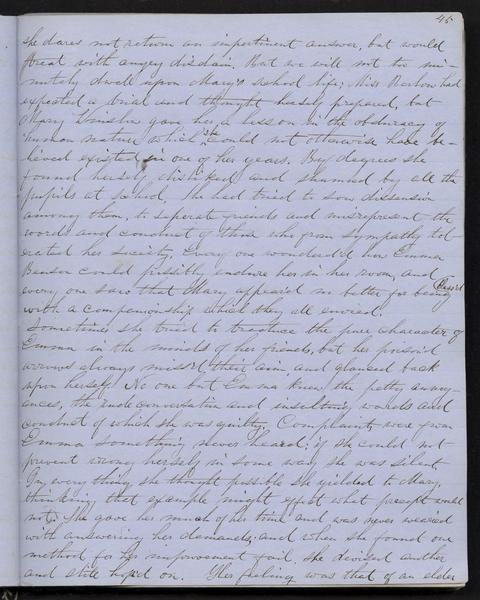 45
she dares not return an impertinent answer, but would
treat with angry disdain. But we will not too mi-
nutely dwell upon Mary's school life; Miss had
expected a trial and thought herself prepared, but
Mary gave her a lesson in the obduracy of
human nature which she could not otherwise have be-
lieved existed in one of her years. By degrees she
found herself disliked and shunned by all the
pupils at school, she had tried to sow dissension
among them, to seperate friends and misrepresent the
words and conduct of those who from sympathy tol-
erated her society. Every one wondered how Emma
Benson could possibly endure her in her room, and
every one saw that Mary appear'd no better for being bless'd
with a companionship which they all envied.
Sometimes she tried to traduce the pure character of
Emma in the minds of her friends, but her poison'd
arrows always miss'd their aim and glanced back
upon herself. No one but Emma knew the petty annoy-
ances, the rude conversation and insulting words and
conduct of which she was guilty. Complaints were from
Emma something never heard; if she could not
prevent wrong herself in some way she was silent
In every thing she thought possible she yielded to Mary,
thinking that example might effect what precept would
not. She gave her much of her time and was never wearied
with answering her demands; and when she found one
method for her improvement fail, she devised another
and still hop'd on. Her feeling was that of an elder